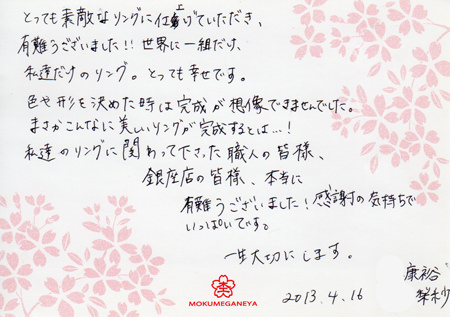 とっても素敵なリングに仕上げていただき、
有難うございました!! 世界に一組だけ、
私達だけのリング。とっても幸せです。
色や形を決めた時は完成が想像できませんでした。
まさかこんなに美しいリングが完成するとは…!
私達のリングに関わって下さった職人の皆様、
銀座店の皆様、本当に
有難うございました!感謝の気持ちで
いっぱいです。
一生大切にします。
MOKUMEGANEYA
2013.4.16